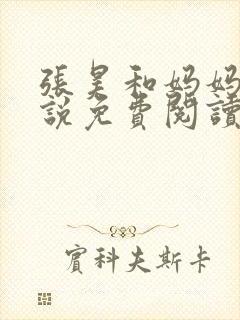 張昊和妈妈
說免費閱讀
賓科夫斯卡